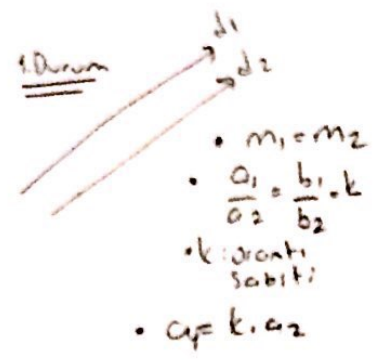 d1
1.Durum
d2
• m₁=m₂
• a₁/a₂=b₁/b₂=k
• k:orantı
sabiti
• a₁=k.a₂